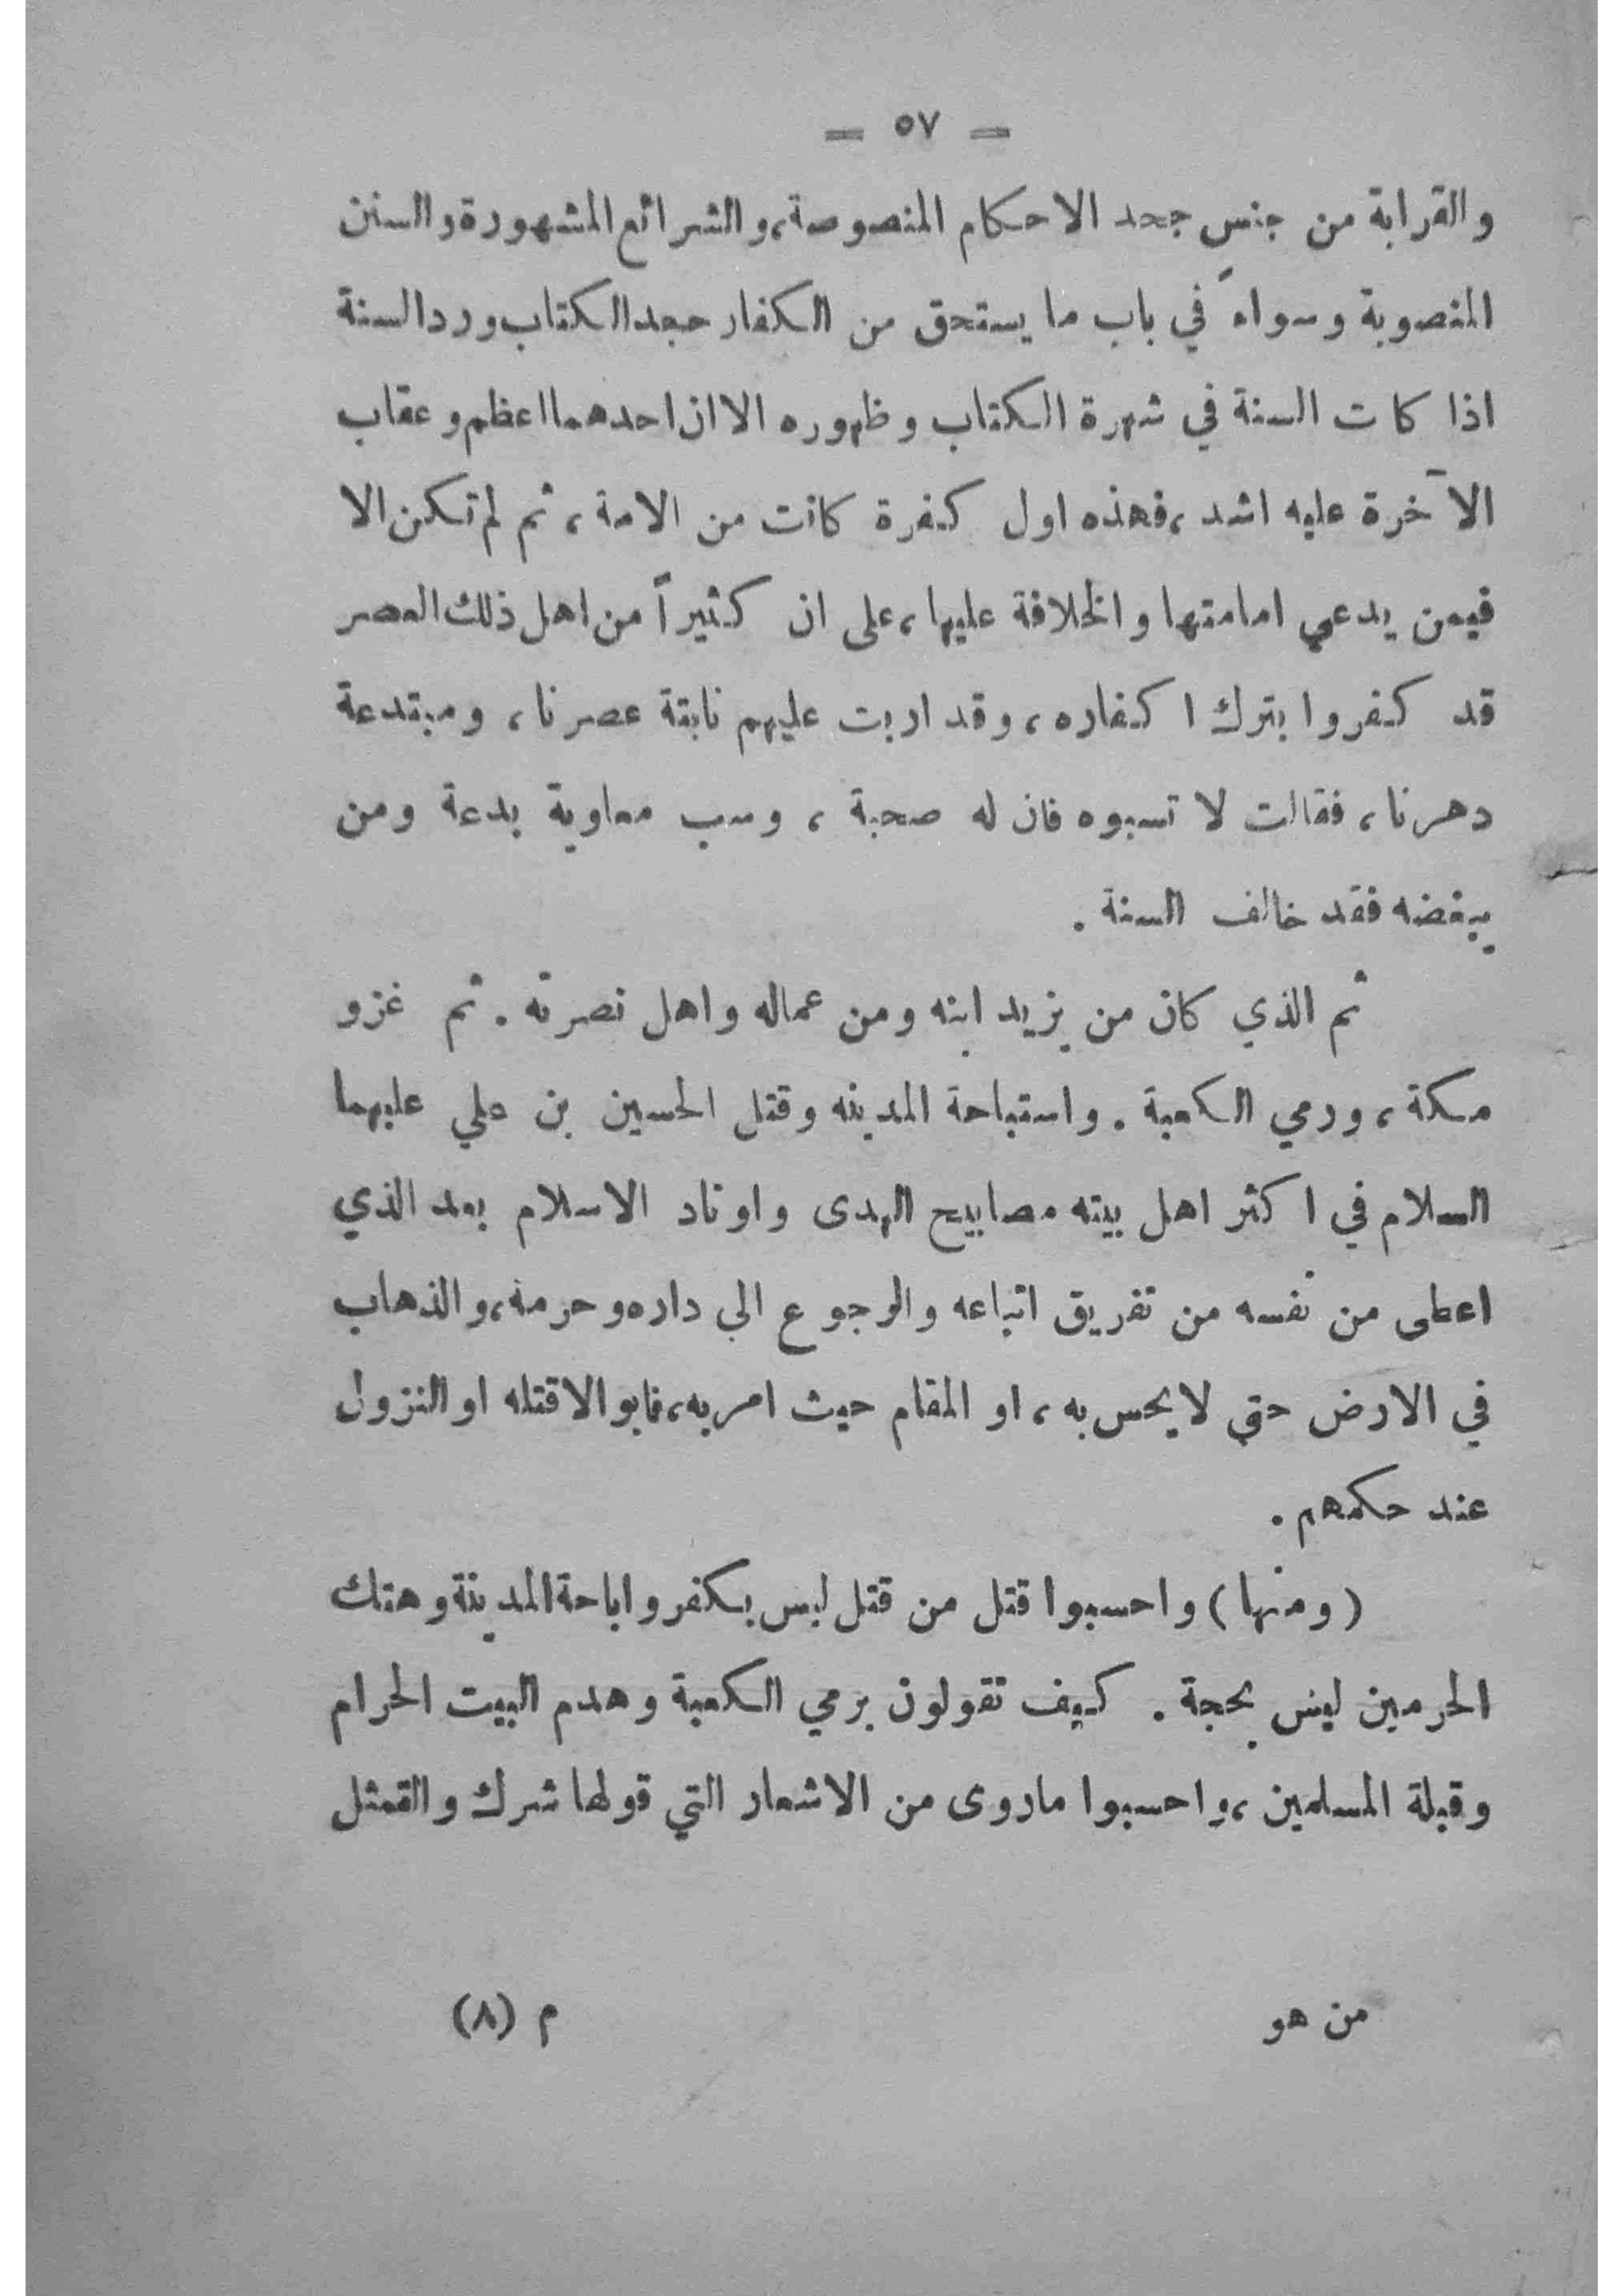 — ٥٧ —
والقرابة من جنس جحد الاحكام المنصوصة، والشرائع المشهورة والسنن
المنصوبة وسواء في باب ما يستحق من الكفار جحد الكتاب ورد السنة
اذا كات السنة في شهرة الكتاب وظهوره الا ان احدهما اعظم وعقاب
الآخرة عليه اشد، فهذه اول كفرة كانت من الامة، ثم لم تكن الا
فيمن يدعي امامتها والخلافة عليها، على ان كثيراً من اهل ذلك العصر
قد كفروا بترك اكفاره، وقد اربت عليهم نابتة عصرنا، ومبتدعة
دهرنا، فقالت لا تسبوه فان له صحبة، وسب معاوية بدعة ومن
يبغضه فقد خالف السنة.
ثم الذي كان من يزيد ابنه ومن عماله واهل نصرته. ثم غزو
مكة، ورمي الكعبة. واستباحة المدينه وقتل الحسين بن علي عليهما
السلام في اكثر اهل بيته مصابيح الهدى واوتاد الاسلام بعد الذي
اعطى من نفسه من تفريق اتباعه والرجوع الى داره وحرمه، والذهاب
في الارض حتى لا يحس به، او المقام حيث امر به، فابوا لا قتله او النزول
عند حكمهم.
(ومنها) واحسبوا قتل من قتل ليس بكفر واباحة المدينة وهتك
الحرمين ليس بحجة. كيف تقولون برمي الكعبة وهدم البيت الحرام
وقبلة المسلمين، واحسبوا ماروى من الاشعار التي قولها شرك والتمثل
من هو
م (٨)